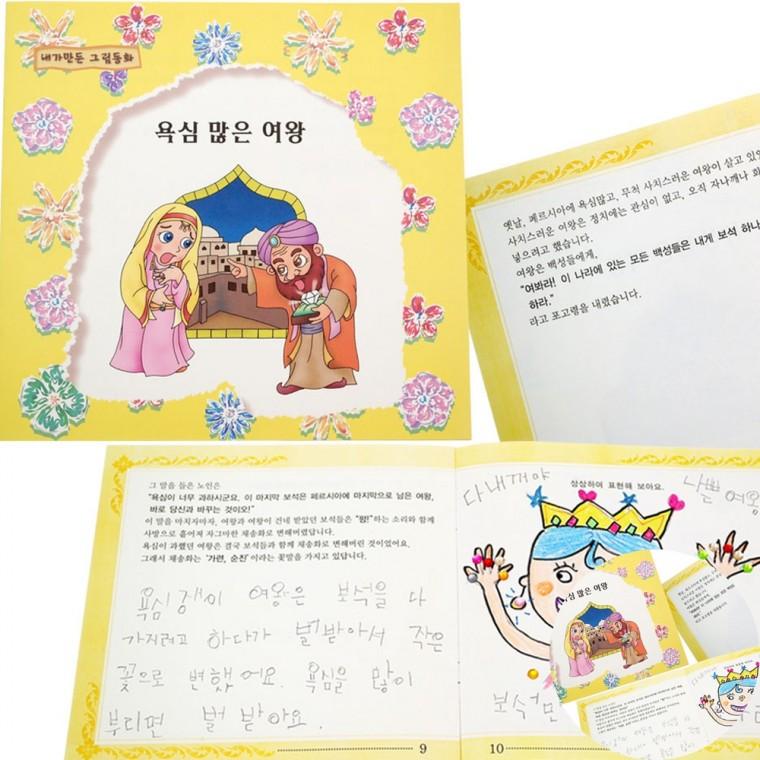 내가만든 그림동화
욕심 많은 여왕
옛날, 페르시아에 욕심많고, 무척 사치스러운 여왕이 살고 있었
사치스러운 여왕은 정치에는 관심이 없고, 오직 자나깨나 화
넣으려고 했습니다.
여왕은 백성들에게,
"여봐라! 이 나라에 있는 모든 백성들은 내게 보석 하나
하라."
라고 포고령을 내렸습니다.
그 말을 들은 노인은
"욕심이 너무 과하시군요, 이 마지막 보석은 페르시아에 마지막으로 남은 여왕,
바로 당신과 바꾸는 것이오!"
이 말을 마치자마자, 여왕과 여왕이 건네 받았던 보석들은 "펑!"하는 소리와 함께
사방으로 흩어져 자그마한 채송화로 변해버렸답니다.
욕심이 과했던 여왕은 결국 보석들과 함께 채송화로 변해버린 것이었어요.
그래서 채송화는 '가련, 순진'이라는 꽃말을 가지고 있답니다.
욕심쟁이 여왕은 보석을 다
가지려고 하다가 벌받아서 작은
꽃으로 변했어요. 욕심을 많이
부리면 벌 받아요.
9
상상하여 표현해 보아요.
다 내꺼야
나쁜 여왕
보석
10
욕심 많은 여왕